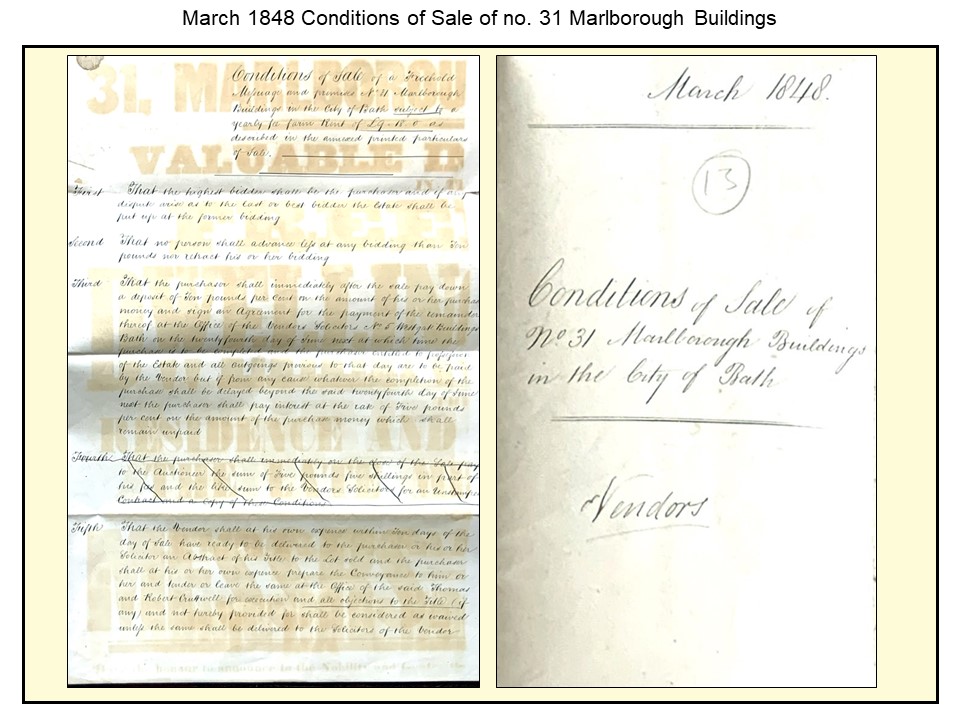 March 1848 Conditions of Sale of no. 31 Marlborough Buildings
31, MARLBOROU
Conditions of Sale of a Freehold
Messuage and premises No 31 Marlborough
Buildings in the City of Bath subject to a
yearly fee farm Rent of as
described in the annexed printed particulars
of Sale.
VALUABLE
First That the highest bidder shall be the purchaser and if any
dispute arise as to the last or best bidder the Estate shall be
put up at the former bidding
Second That no person shall advance less at any bidding than Ten
pounds nor retract his or her bidding
Third That the purchaser shall immediately after the sale pay down
a deposit of Ten pounds per Cent on the amount of his or her purchase
money and sign an Agreement for the payment of the remainder
thereof at the Office of the Vendors Solicitors No 5 Westgate Buildings
Bath on the twentyfourth day of June next at which time the
purchase is to be completed and the purchaser entitled to possession
of the Estate and all outgoings previous to that day are to be paid
by the Vendor but if from any cause whatever the completion of the
purchase shall be delayed beyond the said twentyfourth day of June
next the purchaser shall pay interest at the rate of Five pounds
per cent on the amount of the purchase money which shall
remain unpaid
RESIDENCE AND
Fourth That the purchaser shall immediately on the close of the Sale pay
to the Auctioneer the sum of Five pounds five shillings in part of
his fee and the like sum to the Vendors Solicitors for an unstamped
Contract and a copy of these Conditions
Fifth That the Vendor shall at his own expense within Ten days of the
day of Sale have ready to be delivered to the purchaser or his or her
Solicitor an Abstract of his Title to the Lot sold and the purchaser
shall at his or her own expence prepare the Conveyance to him or
her and tender or leave the same at the Office of the said Thomas
and Robert Cruttwell for execution and all objections to the Title (if
any) and not hereby provided for shall be considered as waived
unless the same shall be delivered to the Solicitors of the Vendor
March 1848.
13
Conditions of Sale of
No 31 Marlborough Buildings
in the City of Bath
Vendors